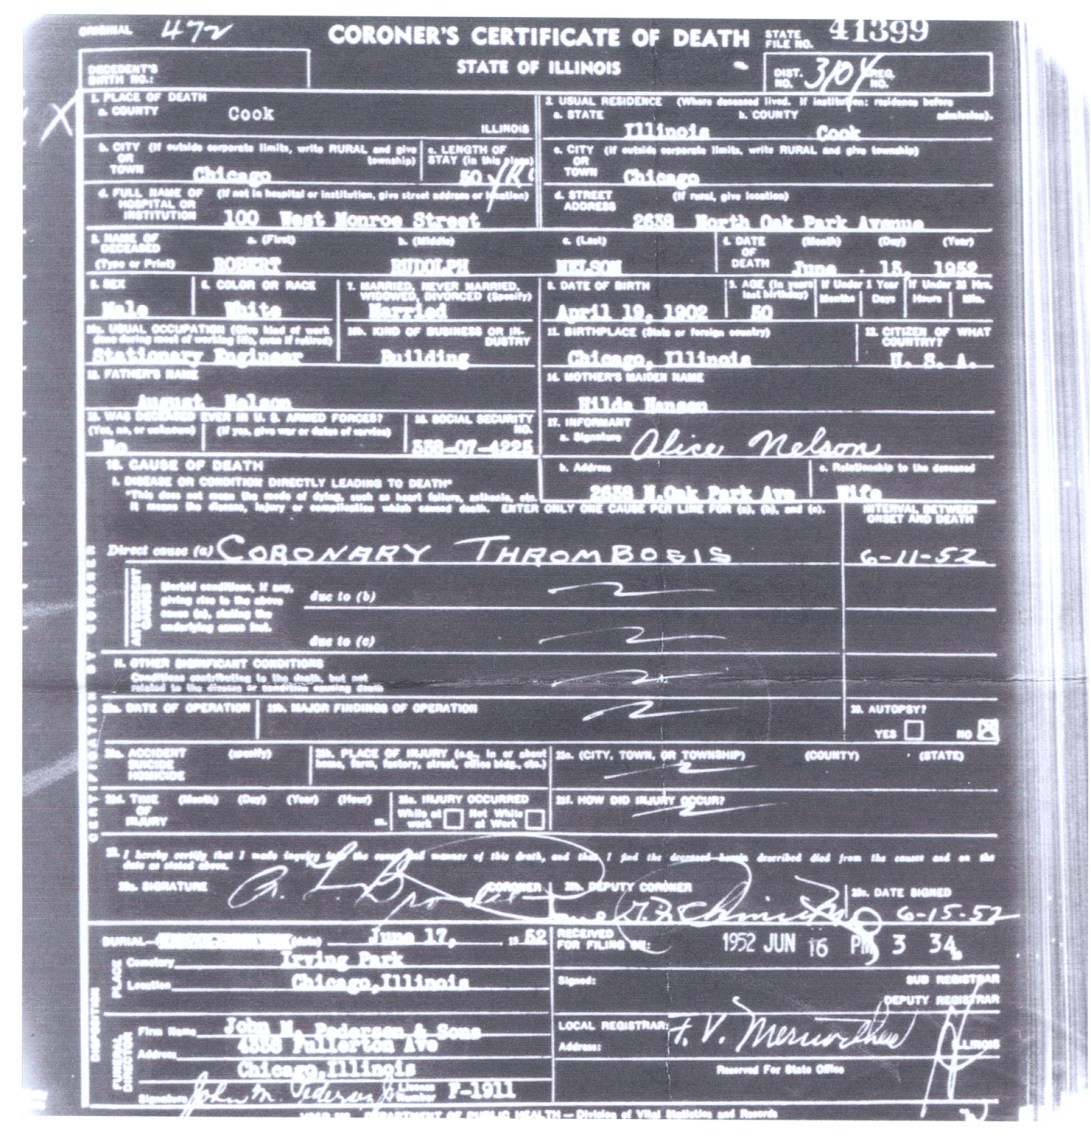 ORIGINAL 472 CORONER'S CERTIFICATE OF DEATH STATE FILE NO. 41399
STATE OF ILLINOIS
DECEDENT'S BIRTH NO.: DIST. NO. 3104 REG. NO.
1. PLACE OF DEATH
a. COUNTY Cook ILLINOIS
2. USUAL RESIDENCE (Where deceased lived. If institution: residence before admission).
a. STATE Illinois b. COUNTY Cook
b. CITY (If outside corporate limits, write RURAL and give township) OR TOWN Chicago
c. LENGTH OF STAY (in this place) 50 yrs
c. CITY (If outside corporate limits, write RURAL and give township) OR TOWN Chicago
d. FULL NAME OF HOSPITAL OR INSTITUTION (If not in hospital or institution, give street address or location) 100 West Monroe Street
d. STREET ADDRESS (If rural, give location) 2638 North Oak Park Avenue
3. NAME OF DECEASED (Type or Print) a. (First) ROBERT b. (Middle) RUDOLPH c. (Last) NELSON
4. DATE OF DEATH (Month) (Day) (Year) June 15, 1952
5. SEX Male
6. COLOR OR RACE White
7. MARRIED, NEVER MARRIED, WIDOWED, DIVORCED (Specify) Married
8. DATE OF BIRTH April 19, 1902
9. AGE (In years last birthday) 50 If Under 1 Year Months Days If Under 24 Hrs. Hours Min.
10a. USUAL OCCUPATION (Give kind of work done during most of working life, even if retired) Stationary Engineer
10b. KIND OF BUSINESS OR INDUSTRY Building
11. BIRTHPLACE (State or foreign country) Chicago, Illinois
12. CITIZEN OF WHAT COUNTRY? U. S. A.
13. FATHER'S NAME August Nelson
14. MOTHER'S MAIDEN NAME Hilda Hansen
15. WAS DECEASED EVER IN U. S. ARMED FORCES? (Yes, no, or unknown) No (If yes, give war or dates of service)
16. SOCIAL SECURITY NO. 338-07-4225
17. INFORMANT
a. Signature Alice Nelson
b. Address 2638 N.Oak Park Ave
c. Relationship to the deceased Wife
18. CAUSE OF DEATH
I. DISEASE OR CONDITION DIRECTLY LEADING TO DEATH*
*This does not mean the mode of dying, such as heart failure, asthenia, etc. It means the disease, injury or complication which caused death. ENTER ONLY ONE CAUSE PER LINE FOR (a), (b), and (c).
INTERVAL BETWEEN ONSET AND DEATH
Direct cause (a) CORONARY THROMBOSIS 6-11-52
ANTECEDENT CAUSES
Morbid conditions, if any, giving rise to the above cause (a), stating the underlying cause last.
due to (b)
due to (c)
II. OTHER SIGNIFICANT CONDITIONS
Conditions contributing to the death, but not related to the disease or condition causing death
19a. DATE OF OPERATION 19b. MAJOR FINDINGS OF OPERATION
20. AUTOPSY? YES NO X
21a. ACCIDENT SUICIDE HOMICIDE (specify)
21b. PLACE OF INJURY (e.g., in or about home, farm, factory, street, office bldg., etc.)
21c. (CITY, TOWN, OR TOWNSHIP) (COUNTY) (STATE)
21d. TIME OF INJURY (Month) (Day) (Year) (Hour) m.
21e. INJURY OCCURRED While at work Not While at Work
21f. HOW DID INJURY OCCUR?
22. I hereby certify that I made inquiry into the cause and manner of this death, and that I find the deceased herein described died from the causes and on the date as stated above.
23a. SIGNATURE A. L. Brodie CORONER
23b. DEPUTY CORONER
23c. DATE SIGNED 6-15-52
CERTIFICATION BY CORONER
BURIAL (date) June 17, 1952
RECEIVED FOR FILING ON: 1952 JUN 16 PM 3 34
DISPOSITION
PLACE
Cemetery Irving Park
Location Chicago,Illinois
Signed: SUB REGISTRAR
DEPUTY REGISTRAR
FUNERAL DIRECTOR
Firm Name John M. Pedersen & Sons
Address 4338 Fullerton Ave
Chicago,Illinois
Signature John M. Pedersen Jr License Number F-1911
LOCAL REGISTRAR:
Address: ILLINOIS
Reserved For State Office
DEPARTMENT OF PUBLIC HEALTH — Division of Vital Statistics and Records